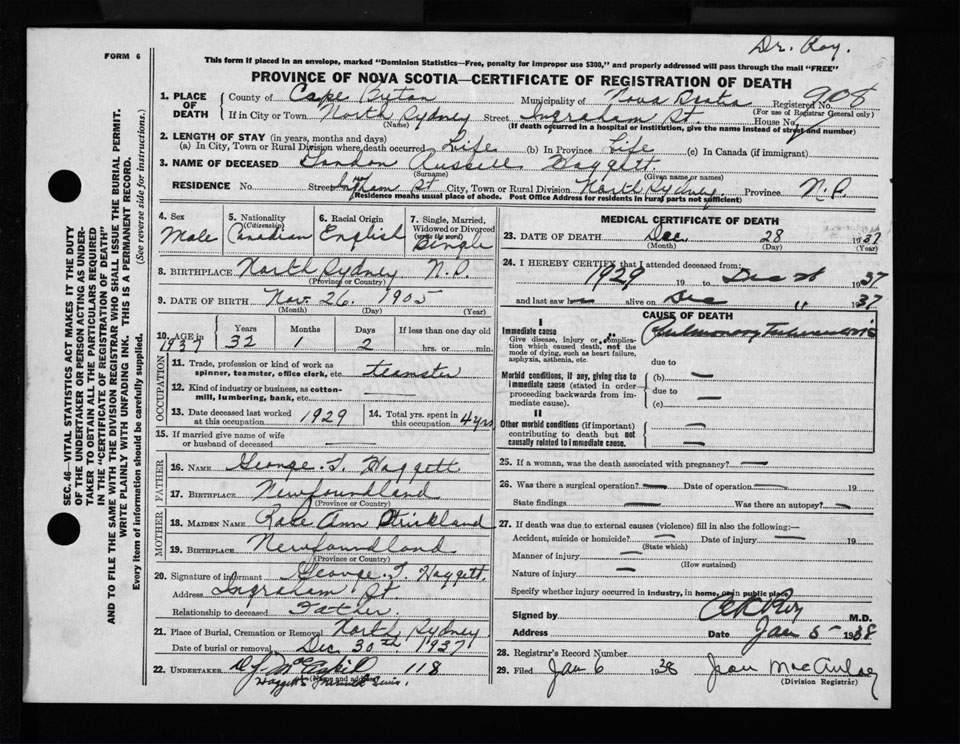 Dr. Roy.
FORM 6
This form if placed in an envelope, marked "Dominion Statistics—Free, penalty for improper use $300," and properly addressed will pass through the mail "FREE"
PROVINCE OF NOVA SCOTIA—CERTIFICATE OF REGISTRATION OF DEATH
1. PLACE OF DEATH
County of Cape Breton Municipality of Nova Scotia Registered No. 908
(For use of Registrar General only)
If in City or Town North Sydney Street Ingraham St. House No.
(Name) (If death occurred in a hospital or institution, give the name instead of street and number)
2. LENGTH OF STAY (in years, months and days)
(a) In City, Town or Rural Division where death occurred Life (b) In Province Life (c) In Canada (if immigrant)
3. NAME OF DECEASED Gordon Russell Haggett.
(Surname) (Given name or names)
RESIDENCE No. Street St City, Town or Rural Division North Sydney. Province N.S
(Residence means usual place of abode. Post Office Address for residents in rural parts not sufficient)
4. Sex Male
5. Nationality (Citizenship) Canadian
6. Racial Origin English
7. Single, Married, Widowed or Divorced (write the word) Single
8. BIRTHPLACE North Sydney N.S.
(Province or Country)
9. DATE OF BIRTH Nov. 26. 1905
(Month) (Day) (Year)
10. AGE in 1937 Years 32 Months 1 Days 2 If less than one day old hrs. or min.
OCCUPATION
11. Trade, profession or kind of work as spinner, teamster, office clerk, etc. teamster
12. Kind of industry or business, as cotton-mill, lumbering, bank, etc. —
13. Date deceased last worked at this occupation 1929
14. Total yrs. spent in this occupation 4 yrs
15. If married give name of wife or husband of deceased —
FATHER
16. NAME George. T. Haggett
17. BIRTHPLACE Newfoundland
(Province or Country)
MOTHER
18. MAIDEN NAME Ann Strickland
19. BIRTHPLACE Newfoundland
(Province or Country)
20. Signature of informant George. T. Haggett.
Address Ingraham St
Relationship to deceased Father.
21. Place of Burial, Cremation or Removal North Sydney
Date of burial or removal Dec 30th 1937
22. UNDERTAKER 118
(Name and address)
MEDICAL CERTIFICATE OF DEATH
23. DATE OF DEATH Dec. 28 1937
(Month) (Day) (Year)
24. I HEREBY CERTIFY that I attended deceased from:
1929 19 to Dec 28 1937
and last saw h alive on Dec " 1937
CAUSE OF DEATH
I
Immediate cause Pulmonary Tuberculosis
Give disease, injury or complication which caused death, not the mode of dying, such as heart failure, asphyxia, asthenia, etc.
due to
Morbid conditions, if any, giving rise to immediate cause (stated in order proceeding backwards from immediate cause).
(b) —
due to
(c) —
II
Other morbid conditions (if important) contributing to death but not causally related to immediate cause.
25. If a woman, was the death associated with pregnancy? —
26. Was there a surgical operation? — Date of operation — 19
State findings — Was there an autopsy? —
27. If death was due to external causes (violence) fill in also the following:—
Accident, suicide or homicide? — Date of injury — 19
(State which)
Manner of injury —
(How sustained)
Nature of injury —
Specify whether injury occurred in industry, in home, or in public place
Signed by M.D.
Address Date Jan 5 1938
28. Registrar's Record Number
29. Filed Jan 6 1938 Jean MacAulay
(Division Registrar)
SEC. 46—VITAL STATISTICS ACT MAKES IT THE DUTY
OF THE UNDERTAKER OR PERSON ACTING AS UNDER-
TAKER TO OBTAIN ALL THE PARTICULARS REQUIRED
IN THE "CERTIFICATE OF REGISTRATION OF DEATH"
AND TO FILE THE SAME WITH THE DIVISION REGISTRAR WHO SHALL ISSUE THE BURIAL PERMIT.
WRITE PLAINLY WITH UNFADING INK. THIS IS A PERMANENT RECORD.
Every item of information should be carefully supplied. (See reverse side for instructions.)